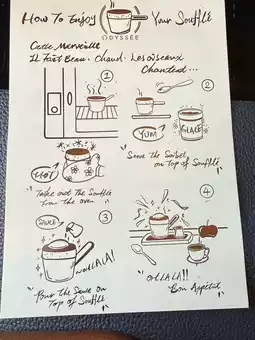 How To Enjoy Your Soufflé
ODYSSÉE
Cette Merveille
Il Fait Beau. Chaud. Les oiseaux
Chantent...
1
2
HOT
YUM
GLACE
Take out the Soufflé
from the oven
Serve the Sorbet
on top of Soufflé
3
4
SAUCE
WOALALA!
Pour the Sauce on
Top of Soufflé
OHLALA!!
Bon Appétit